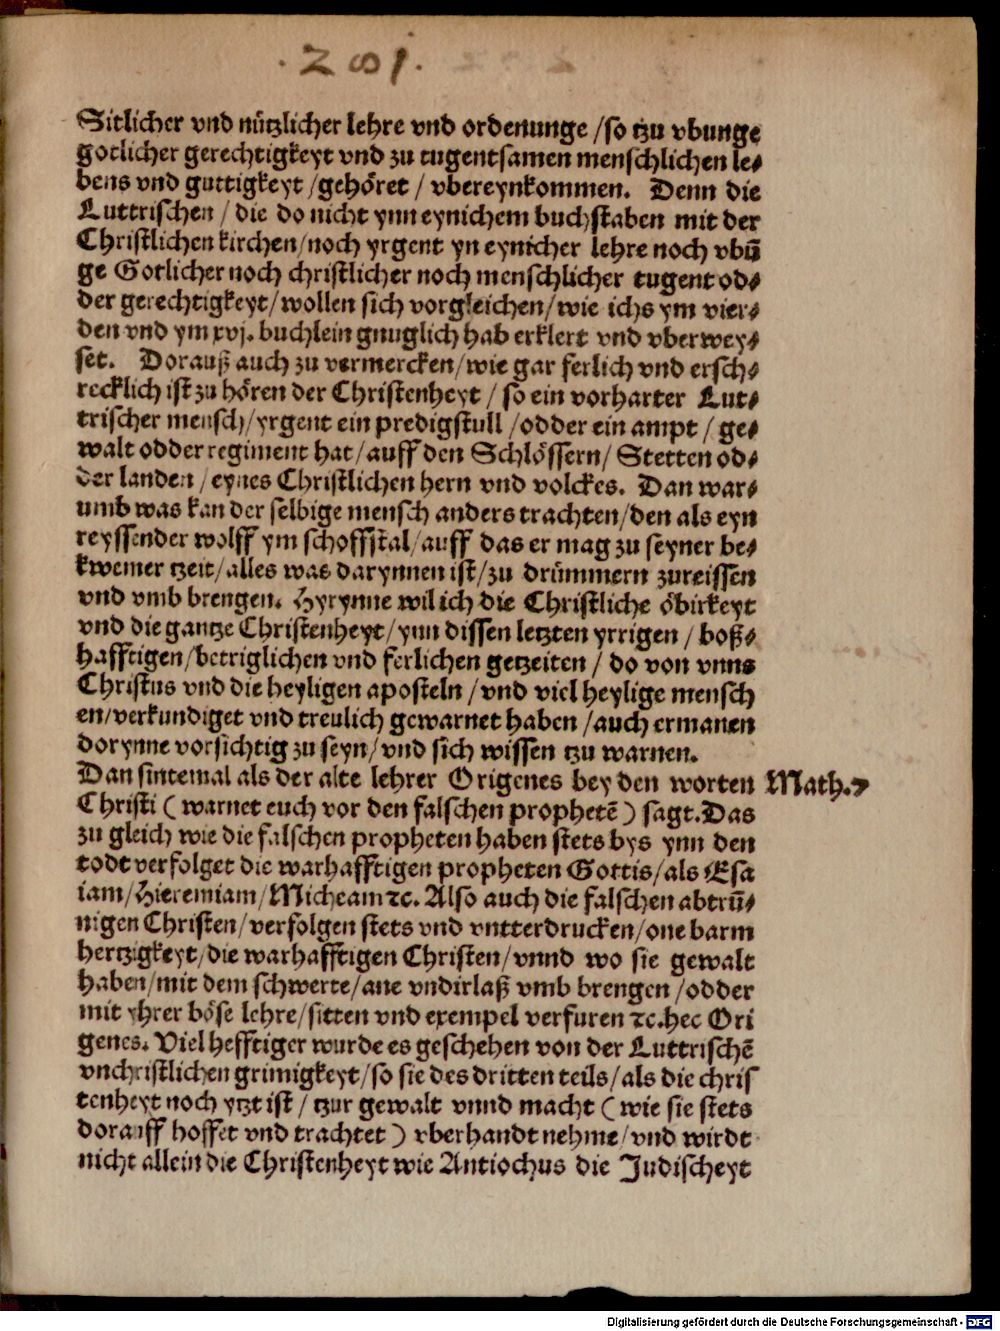 . 281 .
Sitlicher vnd nützlicher lehre vnd ordenunge / so tzu vbunge
gotlicher gerechtigkeyt vnd zu tugentsamen menschlichen le⸗
bens vnd guttigkeyt / gehöret / vbereynkommen. Denn die
Luttrischen / die do nicht ynn eynichem buchstaben mit der
Christlichen kirchen / noch yrgent yn eynicher lehre noch vbū
ge Gotlicher noch christlicher noch menschlicher tugent od⸗
der gerechtigkeyt / wollen sich vorgleichen / wie ichs ym vier⸗
den vnd ym xvj. buchlein gnuglich hab erklert vnd vberwey⸗
set. Dorauß auch zu vermercken / wie gar ferlich vnd ersch⸗
recklich ist zu hören der Christenheyt / so ein vorharter Lut⸗
trischer mensch / yrgent ein predigstull / odder ein ampt / ge⸗
walt odder regiment hat / auff den Schlössern / Stetten od⸗
der landen / eynes Christlichen hern vnd volckes. Dan war⸗
umb was kan der selbige mensch anders trachten / den als eyn
reyssender wolff ym schoffstal / auff das er mag zu seyner be⸗
kwemer tzeit / alles was darynnen ist / zu drümmern zureissen
vnd vmb brengen. Hyrynne wil ich die Christliche öbirkeyt
vnd die gantze Christenheyt / ynn dissen letzten yrrigen / boß⸗
hafftigen / betriglichen vnd ferlichen getzeiten / do von vnns
Christus vnd die heyligen aposteln / vnd viel heylige mensch
en / verkundiget vnd treulich gewarnet haben / auch ermanen
dorynne vorsichtig zu seyn / vnd sich wissen tzu warnen.
Dan sintemal als der alte lehrer Origenes bey den worten Math.7
Christi ( warnet euch vor den falschen prophetē ) sagt. Das
zu gleich wie die falschen propheten haben stets bys ynn den
todt verfolget die warhafftigen propheten Gottis / als Esa
iam / Hieremiam / Micheam ⁊c. Also auch die falschen abtrū⸗
nigen Christen / verfolgen stets vnd vntterdrucken / one barm
hertzigkeyt / die warhafftigen Christen / vnnd wo sie gewalt
haben / mit dem schwerte / ane vndirlaß vmb brengen / odder
mit yhrer böse lehre / sitten vnd exempel verfuren ⁊c. hec Ori
genes. Viel hefftiger wurde es geschehen von der Luttrischē
vnchristlichen grimigkeyt / so sie des dritten teils / als die chris
tenheyt noch ytzt ist / tzur gewalt vnnd macht ( wie sie stets
dorauff hoffet vnd trachtet ) vberhandt nehme / vnd wirdt
nicht allein die Christenheyt wie Antiochus die Judischeyt
Digitalisierung gefördert durch die Deutsche Forschungsgemeinschaft - DFG